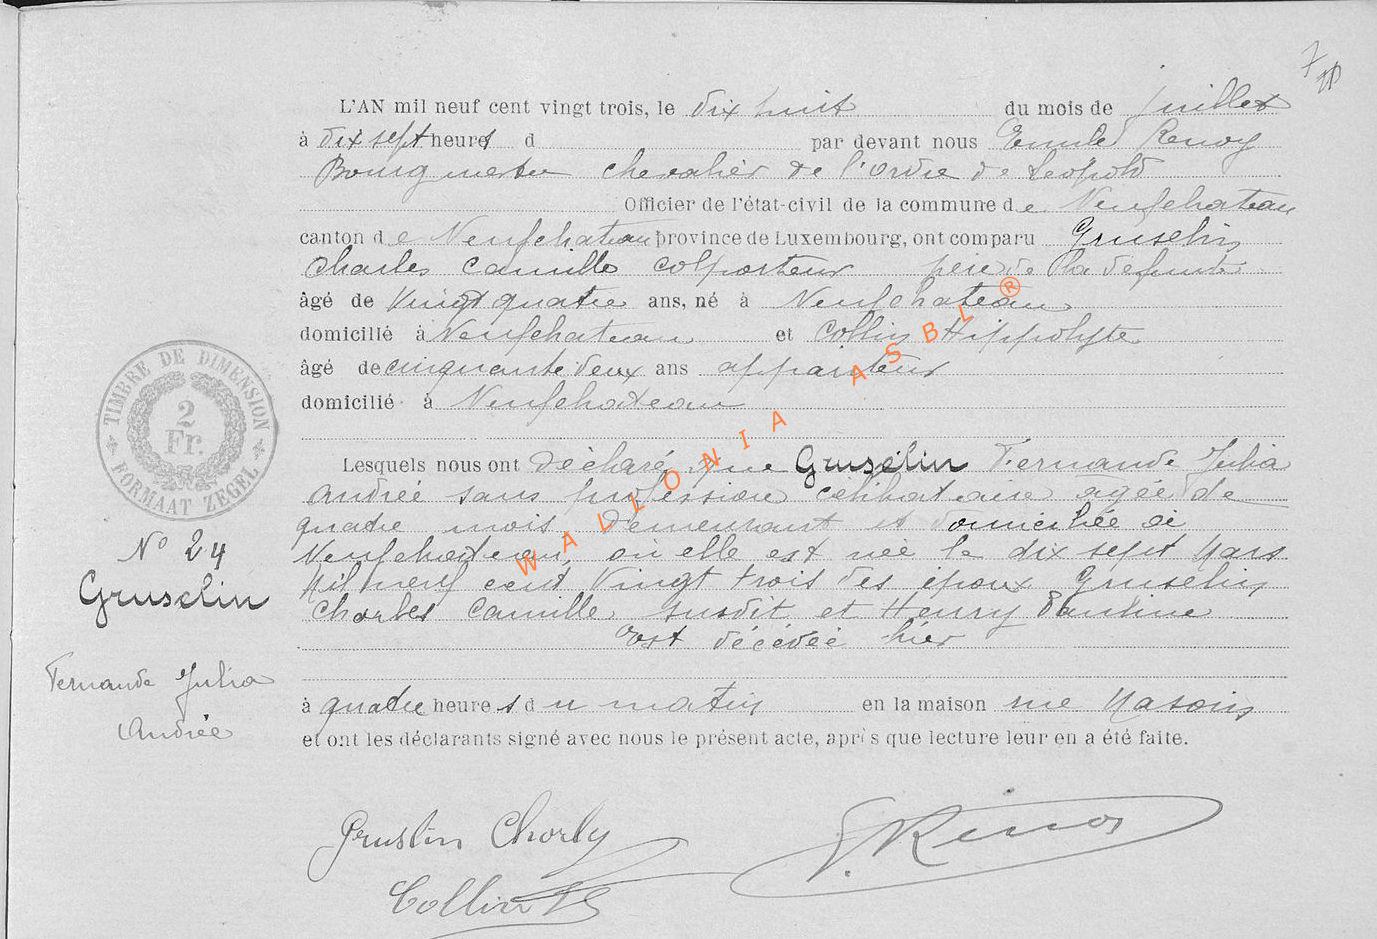 7
L'AN mil neuf cent vingt trois, le dix huit du mois de juillet
à dix sept heures d par devant nous Emile Renoy
Bourgmestre chevalier de l'Ordre de Léopold
Officier de l'état-civil de la commune de Neufchateau
canton de Neufchateau province de Luxembourg, ont comparu Gruselin
Charles Camille colporteur père de la défunte
âgé de vingt quatre ans, né à Neufchateau
domicilié à Neufchateau et Collin Hippolyte
âgé de cinquante deux ans appariteur
domicilié à Neufchateau
Lesquels nous ont déclaré que Gruselin Fernande Julia
Andrée sans profession célibataire âgée de
quatre mois demeurant et domiciliée à
Neufchateau, où elle est née le dix sept Mars
Mil neuf cent vingt trois des époux Gruselin
Charles Camille susdit et Henry Pauline
Est décédée hier
à quatre heures du matin en la maison rue Masoin
et ont les déclarants signé avec nous le présent acte, après que lecture leur en a été faite.
TIMBRE DE DIMENSION
2
Fr.
FORMAAT ZEGEL
N° 24
Gruselin
Fernande Julia
Andrée
WALLONIA ASBL ®
Gruslin Charly
E. Renoy
Collin H